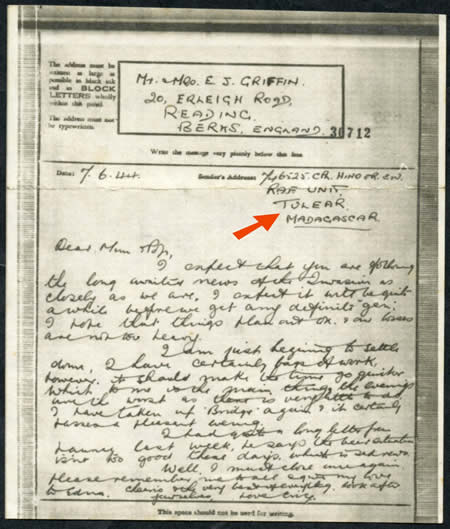 The address must be
written as large as
possible in black ink
and in BLOCK
LETTERS wholly
within this panel.
The address must not
be typewritten.
Mr. & Mrs. E. J. GRIFFIN.
20, ERLEIGH ROAD,
READING,
BERKS, ENGLAND.
30712
Write the message very plainly below this line
Date: 7.6.44. Sender's Address:
RAF UNIT.
TULEAR
MADAGASCAR
Dear Mum & Pop,
I expect that you are following
the long awaited news of the Invasion as
closely as we are, I expect it will be quite
a while before we get any definite gen:
I hope that things pan out ok. & our losses
are not too heavy.
I am just beginning to settle
down, I have certainly bags of work,
however it should make the time go quicker
which to me is the main thing, the evenings
are the worst as there is very little to do
I have taken up 'Bridge' again & it certainly
passes a pleasant evening.
I had quite a long letter from
last week, he says the beer situation
isn't too good these days, which is sad news.
Well, I must close once again
please remember me to all again, my love
to Edna. Cheerio, the very best of everything, look after
yourselves, Love
This space should not be used for writing.